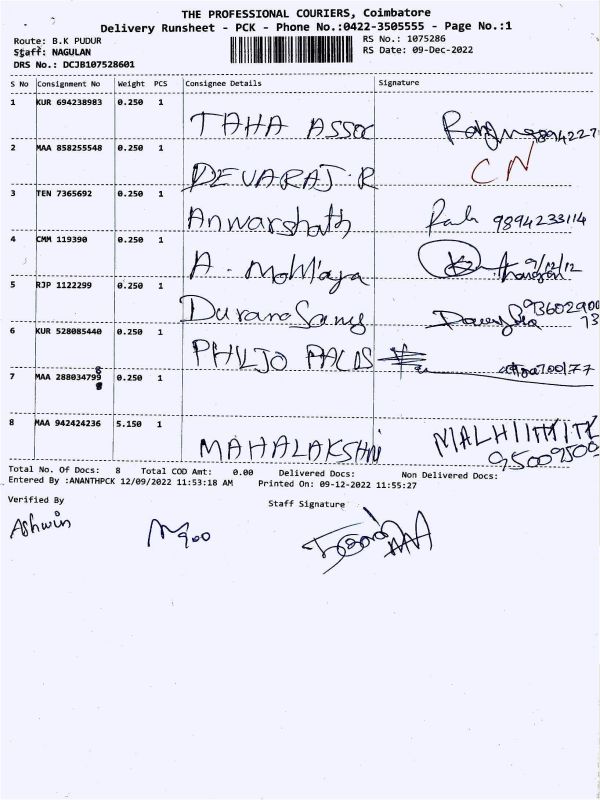 THE PROFESSIONAL COURIERS, Coimbatore
Delivery Runsheet - PCK - Phone No.:0422-3505555 - Page No.:1
Route: B.K PUDUR RS No.: 1075286
Staff: NAGULAN RS Date: 09-Dec-2022
DRS No.: DCJB107528601
S No Consignment No Weight PCS Consignee Details Signature
1 KUR 694238983 0.250 1
TAHA ASSOC
2 MAA 858255548 0.250 1
DEVARAJ R CN
3 TEN 7365692 0.250 1
Anwarshath 9894233114
4 CMM 119390 0.250 1
A. 9/12/12
5 RJP 1122299 0.250 1
6 KUR 528085440 0.250 1
7 MAA 288034799 0.250 1
8 MAA 942424236 5.150 1
MAHALAKSHMI
Total No. Of Docs: 8 Total COD Amt: 0.00 Delivered Docs: Non Delivered Docs:
Entered By :ANANTHPCK 12/09/2022 11:53:18 AM Printed On: 09-12-2022 11:55:27
Verified By Staff Signature
Ashwin